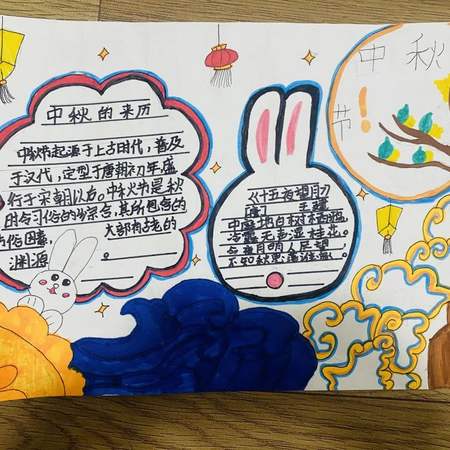 中秋的来历
中秋节起源于上古时代，普及
于汉代，定型于唐朝初年，盛
行于宋朝以后。中秋节是秋
时令习俗的综合，其所包含的
节俗 大部 古老的
渊源。
《十五夜望月》
[唐] 王建
中庭地白树栖鸦，
冷露无声湿桂花。
今夜月明人尽望，
不知秋思落谁家。
中秋
节！